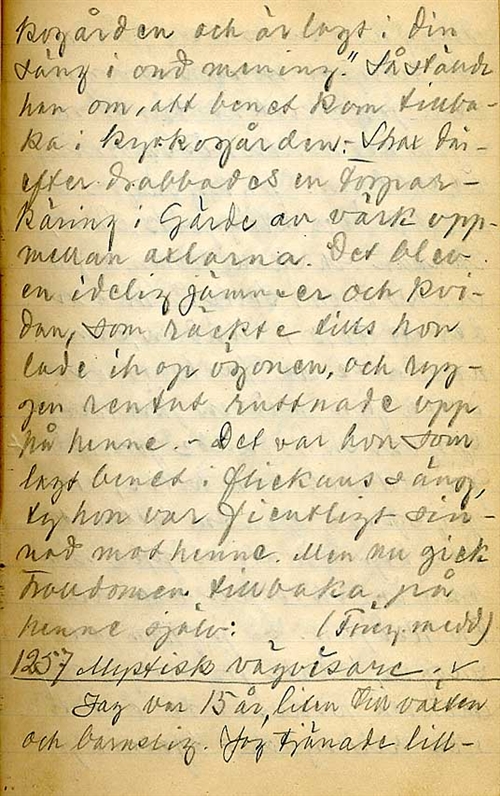 kogården och är lagt i din
säng i ond mening." Så stände
han om, att benet kom tillba-
ka i kyrkogården. - Strax där-
efter drabbades en torpar-
käring i Gärde av värk upp-
mellan axlarna. Det blev
en idelig jämmer och kvi-
dan, som räckte tills hon
lade ihop ögonen, och ryg-
gen rentut ruttnade upp
på henne. - Det var hon som
lagt benet i flickans säng,
ty hon var fientligt sin-
nad mot henne. Men nu gick
trolldomen tillbaka på
henne själv. (Förey. medd)
1257 Mystisk vägvisare. ✓
Jag var 15 år, liten till växten
och barnslig. Jag tjänade lill-